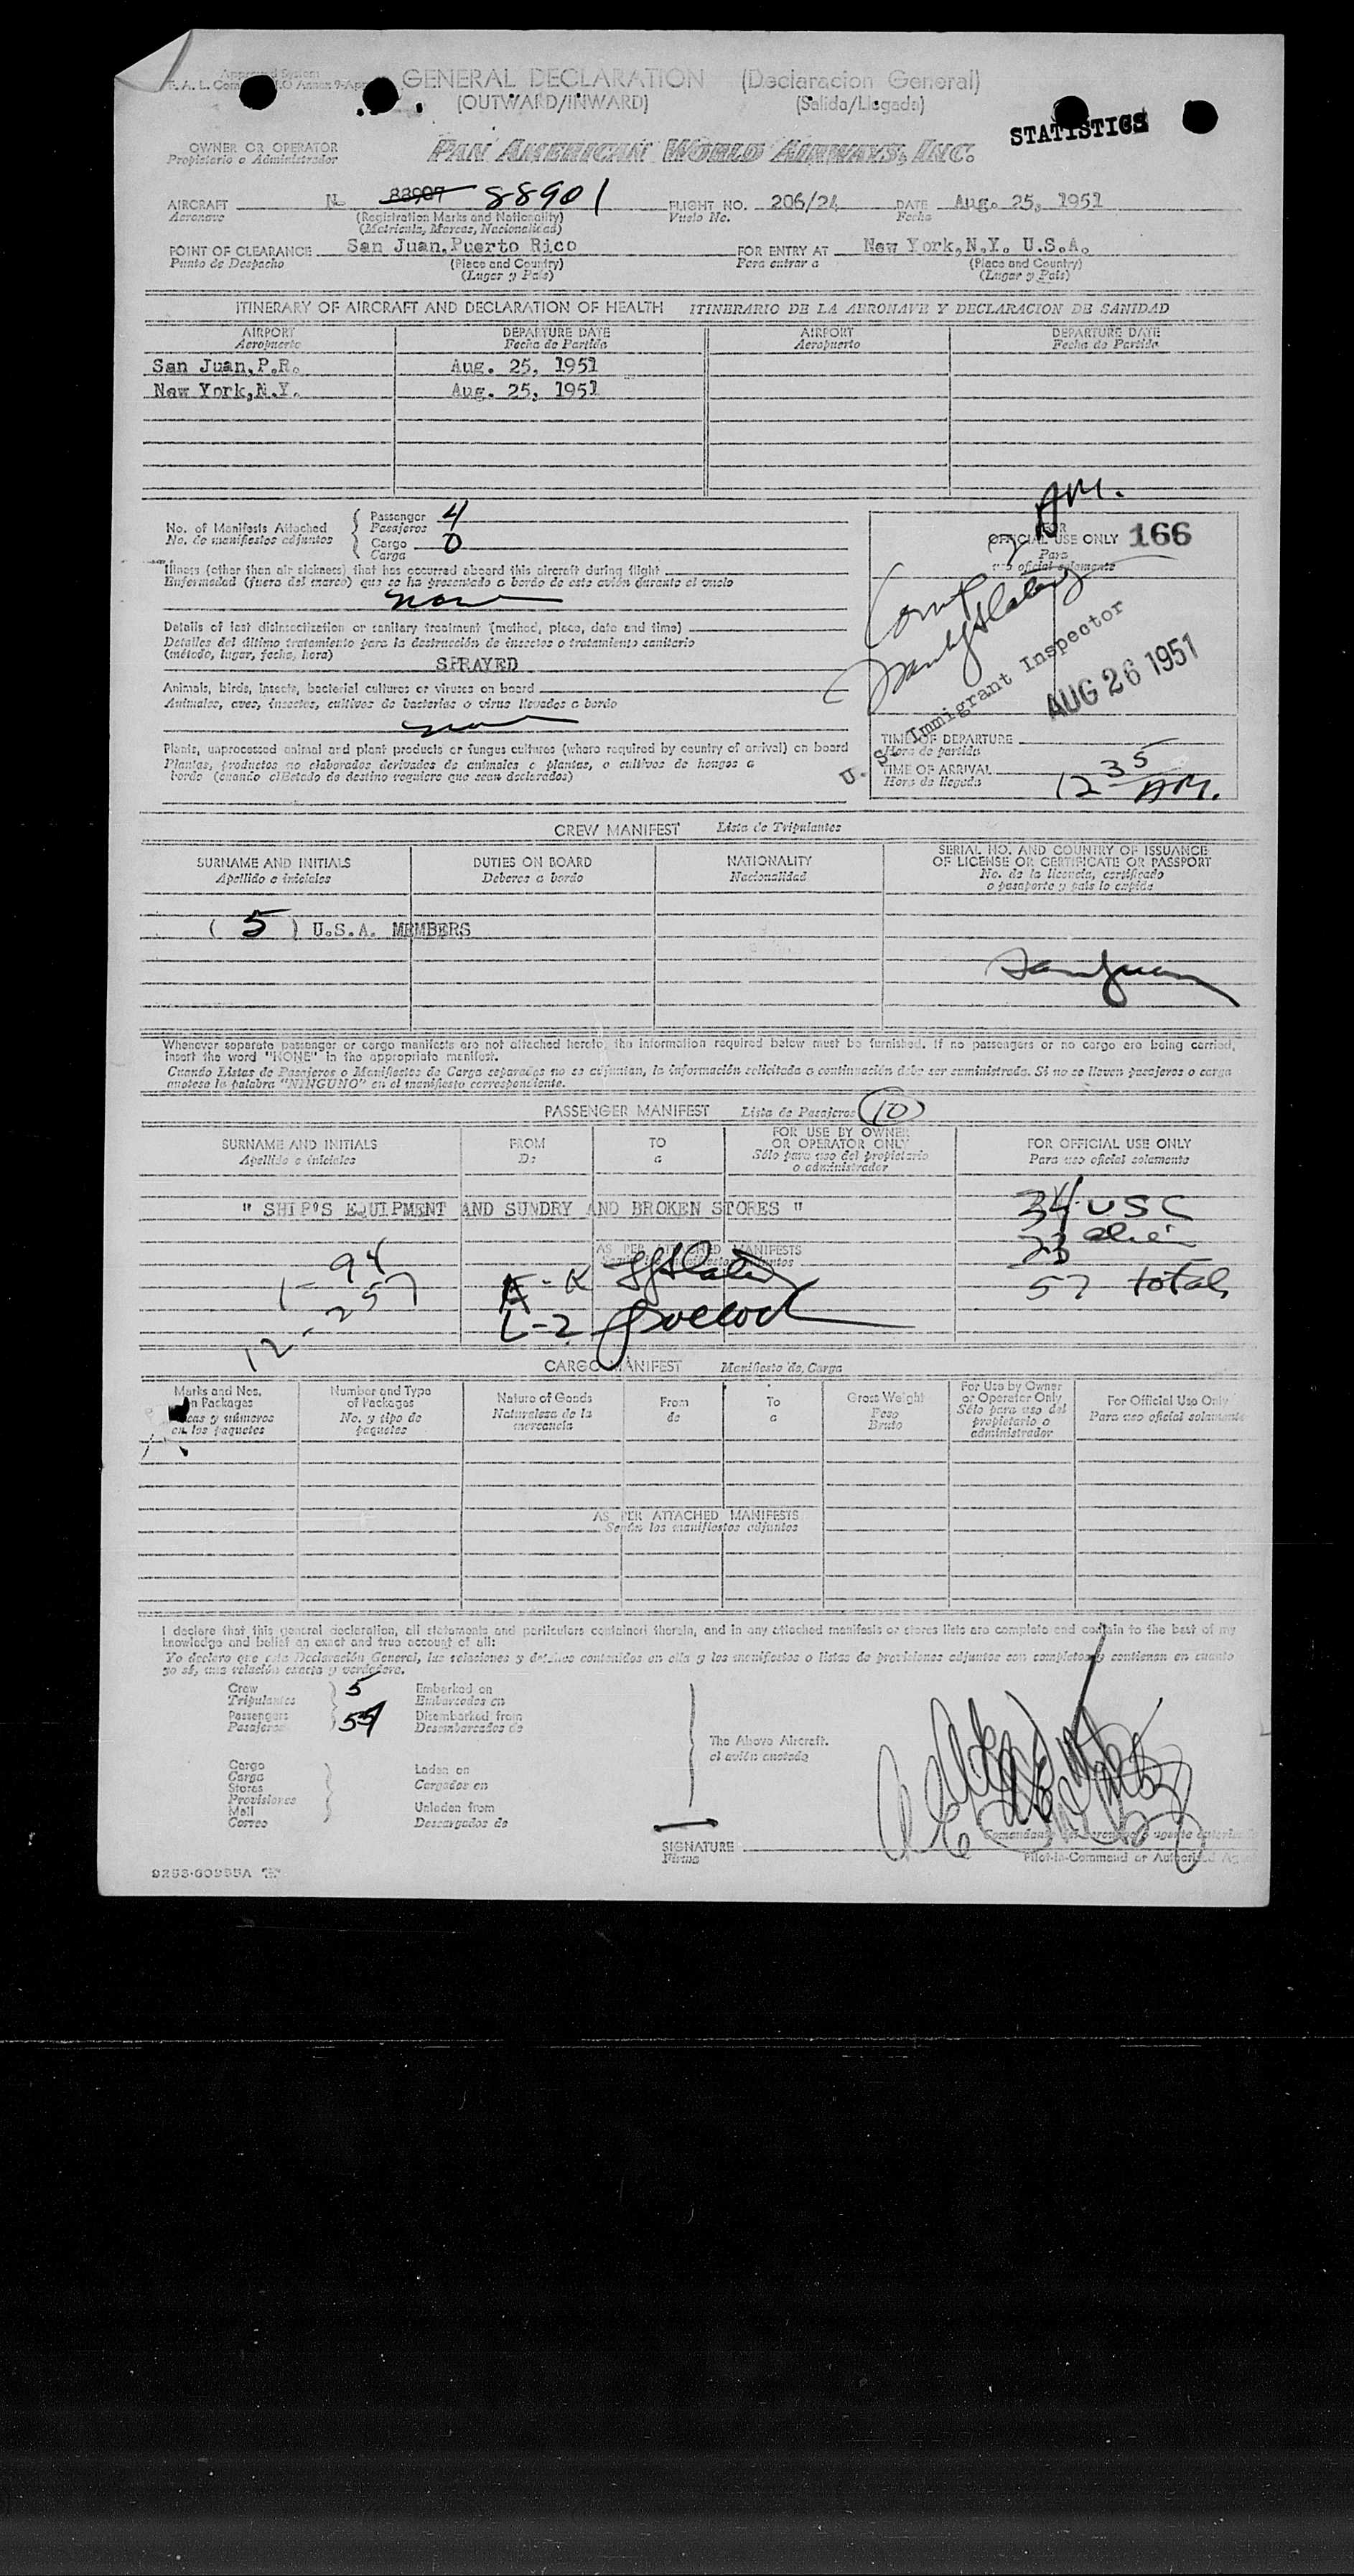 Approved System
GENERAL DECLARATION (Declaracion General)
(OUTWARD/INWARD) (Salida/Llegada)
STATISTICS
OWNER OR OPERATOR
Propietario o Administrador
PAN AMERICAN WORLD AIRWAYS, INC.
AIRCRAFT N 88907 88901 FLIGHT NO. 206/24 DATE Aug. 25, 1951
Aeronave (Registration Marks and Nationality) Vuelo No. Fecha
(Matricula, Marcas, Nacionalidad)
POINT OF CLEARANCE San Juan, Puerto Rico FOR ENTRY AT New York, N.Y. U.S.A.
Punto de Despacho (Place and Country) Para entrar a (Place and Country)
(Lugar y Pais) (Lugar y Pais)
ITINERARY OF AIRCRAFT AND DECLARATION OF HEALTH ITINERARIO DE LA AERONAVE Y DECLARACION DE SANIDAD
AIRPORT DEPARTURE DATE AIRPORT DEPARTURE DATE
Aeropuerto Fecha de Partida Aeropuerto Fecha de Partida
San Juan, P.R. Aug. 25, 1951
New York, N.Y. Aug. 25, 1951
AM.
No. of Manifests Attached Passenger 4
No. de manifiestos adjuntos Pasajeros
Cargo 0
Carga
FOR
OFFICIAL USE ONLY 166
Para
uso oficial solamente
Illness (other than air sickness) that has occurred aboard this aircraft during flight
Enfermedad (fuera del mareo) que se ha presentado a bordo de este avión durante el vuelo
none
Details of last disinsectization or sanitary treatment (method, place, date and time)
Detalles del último tratamiento para la destrucción de insectos o tratamiento sanitario
(método, lugar, fecha, hora)
SPRAYED
U. S. Immigrant Inspector
AUG 26 1951
Animals, birds, insects, bacterial cultures or viruses on board
Animales, aves, insectos, cultivos de bacterias o virus llevados a bordo
none
Plants, unprocessed animal and plant products or fungus cultures (where required by country of arrival) on board
Plantas, productos no elaborados derivados de animales o plantas, o cultivos de hongos a
bordo (cuando el Estado de destino requiere que sean declarados)
TIME OF DEPARTURE
Hora de partida
TIME OF ARRIVAL 12 35 AM.
Hora de llegada
CREW MANIFEST Lista de Tripulantes
SURNAME AND INITIALS DUTIES ON BOARD NATIONALITY SERIAL NO. AND COUNTRY OF ISSUANCE
OF LICENSE OR CERTIFICATE OR PASSPORT
Apellido e iniciales Deberes a bordo Nacionalidad No. de la licencia, certificado
o pasaporte y pais lo expide
( 5 ) U.S.A. MEMBERS
San Juan
Whenever separate passenger or cargo manifests are not attached hereto, the information required below must be furnished. If no passengers or no cargo are being carried,
insert the word "NONE" in the appropriate manifest.
Cuando Listas de Pasajeros o Manifiestos de Carga separados no se adjuntan, la información solicitada a continuación debe ser suministrada. Si no se lleven pasajeros o carga
anotese la palabra "NINGUNO" en el manifiesto correspondiente.
PASSENGER MANIFEST Lista de Pasajeros (10)
SURNAME AND INITIALS FROM TO FOR USE BY OWNER
OR OPERATOR ONLY FOR OFFICIAL USE ONLY
Apellido e iniciales De a Sólo para uso del propietario
o administrador Para uso oficial solamente
" SHIP'S EQUIPMENT AND SUNDRY AND BROKEN STORES "
34 USC
23 alien
57 total
AS PER ATTACHED MANIFESTS
1-94
12-257
A-K
L-Z
CARGO MANIFEST Manifiesto de Carga
Marks and Nos.
on Packages
Marcas y números
en los paquetes
Number and Type
of Packages
No. y tipo de
paquetes
Nature of Goods
Naturaleza de la
mercancia
From
de
To
a
Gross Weight
Peso
Bruto
For Use by Owner
or Operator Only
Sólo para uso del
propietario o
administrador
For Official Use Only
Para uso oficial solamente
AS PER ATTACHED MANIFESTS
Según los manifiestos adjuntos
I declare that this general declaration, all statements and particulars contained therein, and in any attached manifests or stores lists are complete and contain to the best of my
knowledge and belief an exact and true account of all:
Yo declaro que esta Declaración General, las relaciones y detalles contenidos en ella y los manifiestos o listas de provisiones adjuntos son completos y contienen en cuanto
yo sé, una relación exacta y verdadera.
Crew 5 Embarked on
Tripulantes Embarcados en
Passengers Disembarked from
Pasajeros Desembarcados de
The Above Aircraft.
el avión anotado
Cargo Laden on
Carga Cargados en
Stores
Provisiones
Mail Unladen from
Correo Descargados de
SIGNATURE
Firma
Pilot-in-Command or Authorized
9253-60955A